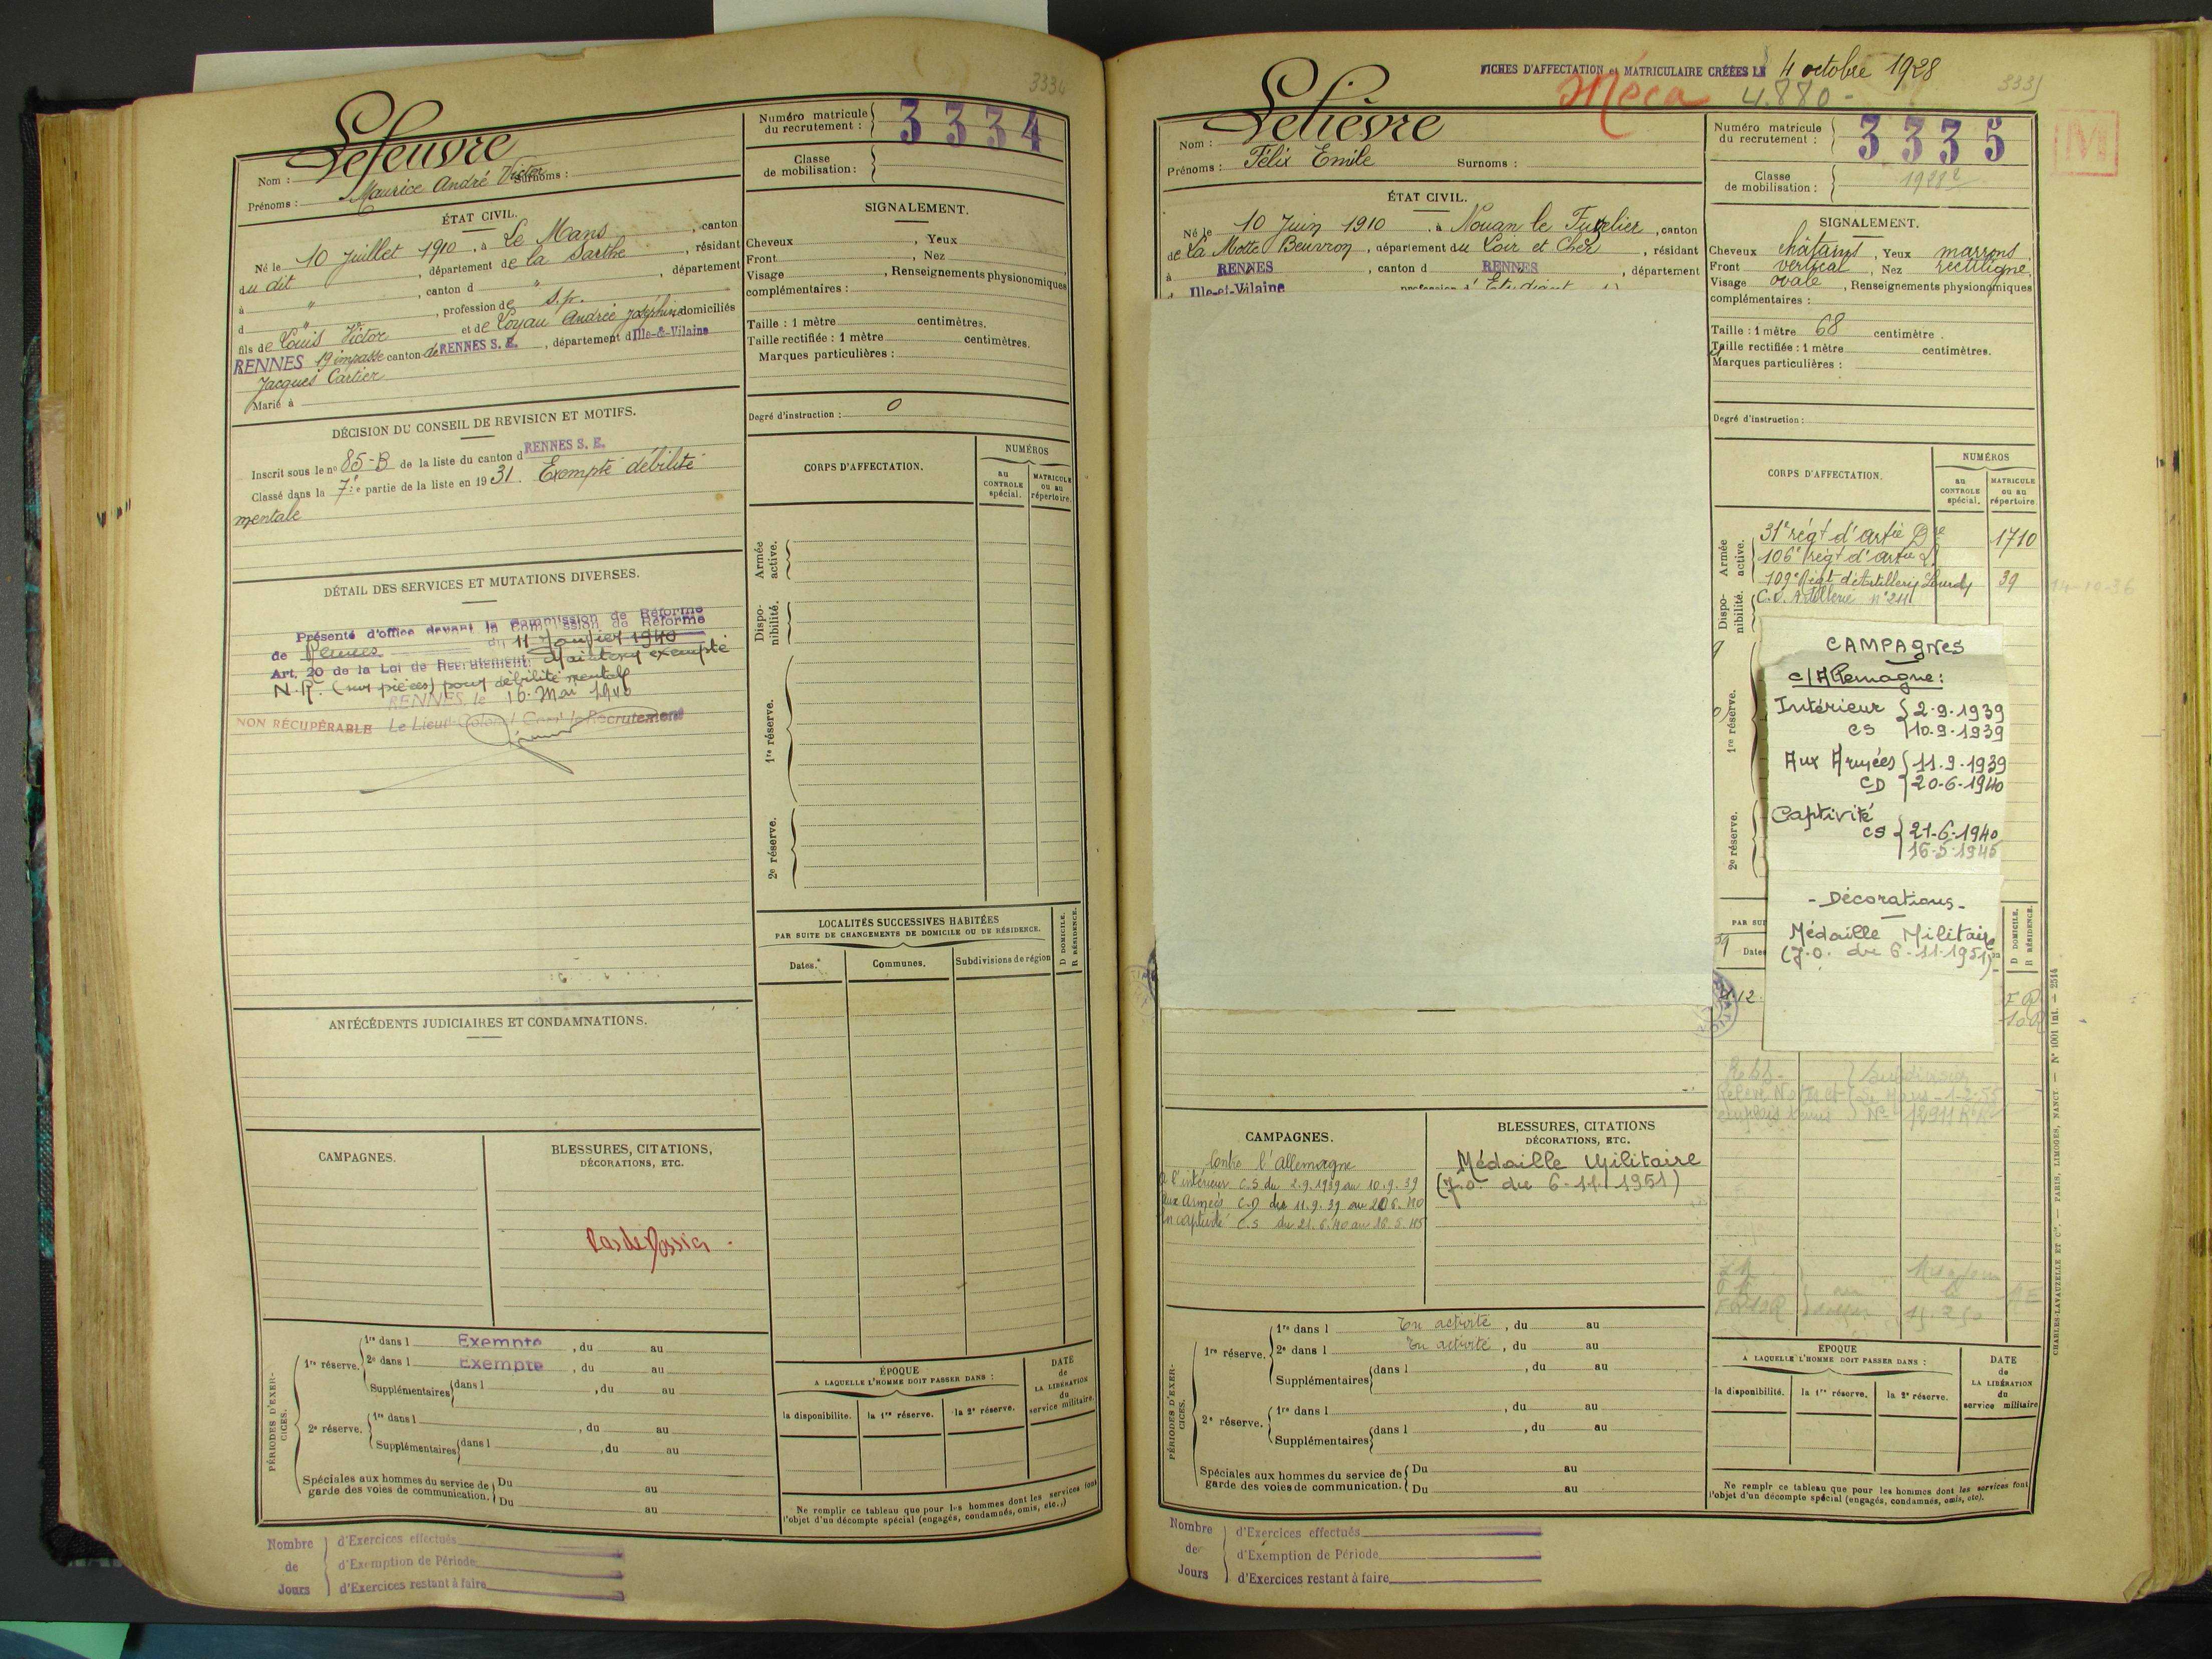 3334
Lefeuvre
Nom :
Maurice André Victor
Prénoms :
Surnoms :
Numéro matricule du recrutement :
3334
Classe de mobilisation :
ÉTAT CIVIL.
Né le 10 juillet 1910 , à Le Mans , canton
du dit , département de la Sarthe , résidant
à " , canton d " , département
d " , profession de s.p.
fils de Louis Victor et de Loyau Andrée Joséphine domiciliés
RENNES 19 impasse canton de RENNES S. E. , département d Ille-&-Vilaine
Jacques Cartier
Marié à
SIGNALEMENT.
Cheveux , Yeux
Front , Nez
Visage , Renseignements physionomiques
complémentaires :
Taille : 1 mètre centimètres.
Taille rectifiée : 1 mètre centimètres.
Marques particulières :
Degré d'instruction : 0
DÉCISION DU CONSEIL DE REVISION ET MOTIFS.
Inscrit sous le n° 85-B de la liste du canton d RENNES S. E.
Classé dans la 7e partie de la liste en 1931. Exempté débilité
mentale
DÉTAIL DES SERVICES ET MUTATIONS DIVERSES.
Présenté d'office devant la Commission de Réforme
de Rennes du 11 Janvier 1940
Art. 20 de la Loi de Recrutement: Maintenu exempté
N.R. (sur pièces) pour débilité mentale
RENNES, le 16 Mai 1940
NON RÉCUPÉRABLE Le Lieut-Colonel Comt le Recrutement
CORPS D'AFFECTATION.
NUMÉROS
au CONTROLE spécial.
MATRICULE ou au répertoire.
Armée active.
Disponibilité.
1re réserve.
2e réserve.
LOCALITÉS SUCCESSIVES HABITÉES
PAR SUITE DE CHANGEMENTS DE DOMICILE OU DE RÉSIDENCE.
Dates.
Communes.
Subdivisions de région
D DOMICILE.
R RÉSIDENCE.
ANTÉCÉDENTS JUDICIAIRES ET CONDAMNATIONS.
CAMPAGNES.
BLESSURES, CITATIONS,
DÉCORATIONS, ETC.
Pas de Dossier -
PÉRIODES D'EXERCICES.
1re réserve.
1re dans l Exempté , du au
2e dans l Exempté , du au
Supplémentaires dans l , du au
2e réserve.
1re dans l , du au
Supplémentaires dans l , du au
Spéciales aux hommes du service de garde des voies de communication.
Du au
Du au
ÉPOQUE
A LAQUELLE L'HOMME DOIT PASSER DANS :
la disponibilité.
la 1re réserve.
la 2e réserve.
DATE de LA LIBÉRATION du service militaire.
Ne remplir ce tableau que pour les hommes dont les services font
l'objet d'un décompte spécial (engagés, condamnés, omis, etc.,)
Nombre de Jours
d'Exercices effectués
d'Exemption de Période
d'Exercices restant à faire
FICHES D'AFFECTATION et MATRICULAIRE CRÉÉES LE 4 octobre 1928
Méca 4.880 -
3335
Lelièvre
Nom :
Prénoms : Félix Emile Surnoms :
Numéro matricule du recrutement :
3335
M
Classe de mobilisation : 1928 2
ÉTAT CIVIL.
Né le 10 Juin 1910 , à Nouan le Fuzelier , canton
de La Motte Beuvron , département du Loir et Cher , résidant
à RENNES , canton d RENNES , département
d Ille-et-Vilaine profession d' Etudiant
SIGNALEMENT.
Cheveux châtains , Yeux marrons
Front vertical , Nez rectiligne
Visage ovale , Renseignements physionomiques
complémentaires :
Taille : 1 mètre 68 centimètre .
Taille rectifiée : 1 mètre centimètres.
Marques particulières :
Degré d'instruction :
CORPS D'AFFECTATION.
NUMÉROS
au CONTROLE spécial.
MATRICULE ou au répertoire.
Armée active.
31e régt d'artie Dre 1710
106e régt d'artie L.
109e Régt d'Artillerie Lourde 39
14-10-36
Disponibilité.
C.O. Artillerie n° 211
1re réserve.
2e réserve.
CAMPAGNES
c/Allemagne :
Intérieur 2.9.1939
CS 10.9.1939
Aux Armées 11.9.1939
CD 20-6-1940
Captivité
CS 21-6-1940
16-5-1945
- Décorations -
Médaille Militaire
(J.O. du 6-11-1951)
PAR SUI
Dates
D DOMICILE.
R RÉSIDENCE.
CAMPAGNES.
Contre l'Allemagne
à l'intérieur C.S. du 2.9.1939 au 10.9.39
aux Armées C.D du 11.9.39 au 20 6.40
En captivité C.S du 21.6.40 au 16.5.45
BLESSURES, CITATIONS
DÉCORATIONS, ETC.
Médaille Militaire
(J.O. du 6-11-1951)
PÉRIODES D'EXERCICES.
1re réserve.
1re dans l En activité , du au
2e dans l En activité , du au
Supplémentaires dans l , du au
2e réserve.
1re dans l , du au
Supplémentaires dans l , du au
Spéciales aux hommes du service de garde des voies de communication.
Du au
Du au
ÉPOQUE
A LAQUELLE L'HOMME DOIT PASSER DANS :
la disponibilité.
la 1re réserve.
la 2e réserve.
DATE de LA LIBÉRATION du service militaire
Ne remplir ce tableau que pour les hommes dont les services font
l'objet d'un décompte spécial (engagés, condamnés, omis, etc).
CHARLES-LAVAUZELLE ET Cie. — PARIS, LIMOGES, NANCY. — N° 1001 int. — 2514
Nombre de Jours
d'Exercices effectués
d'Exemption de Période
d'Exercices restant à faire